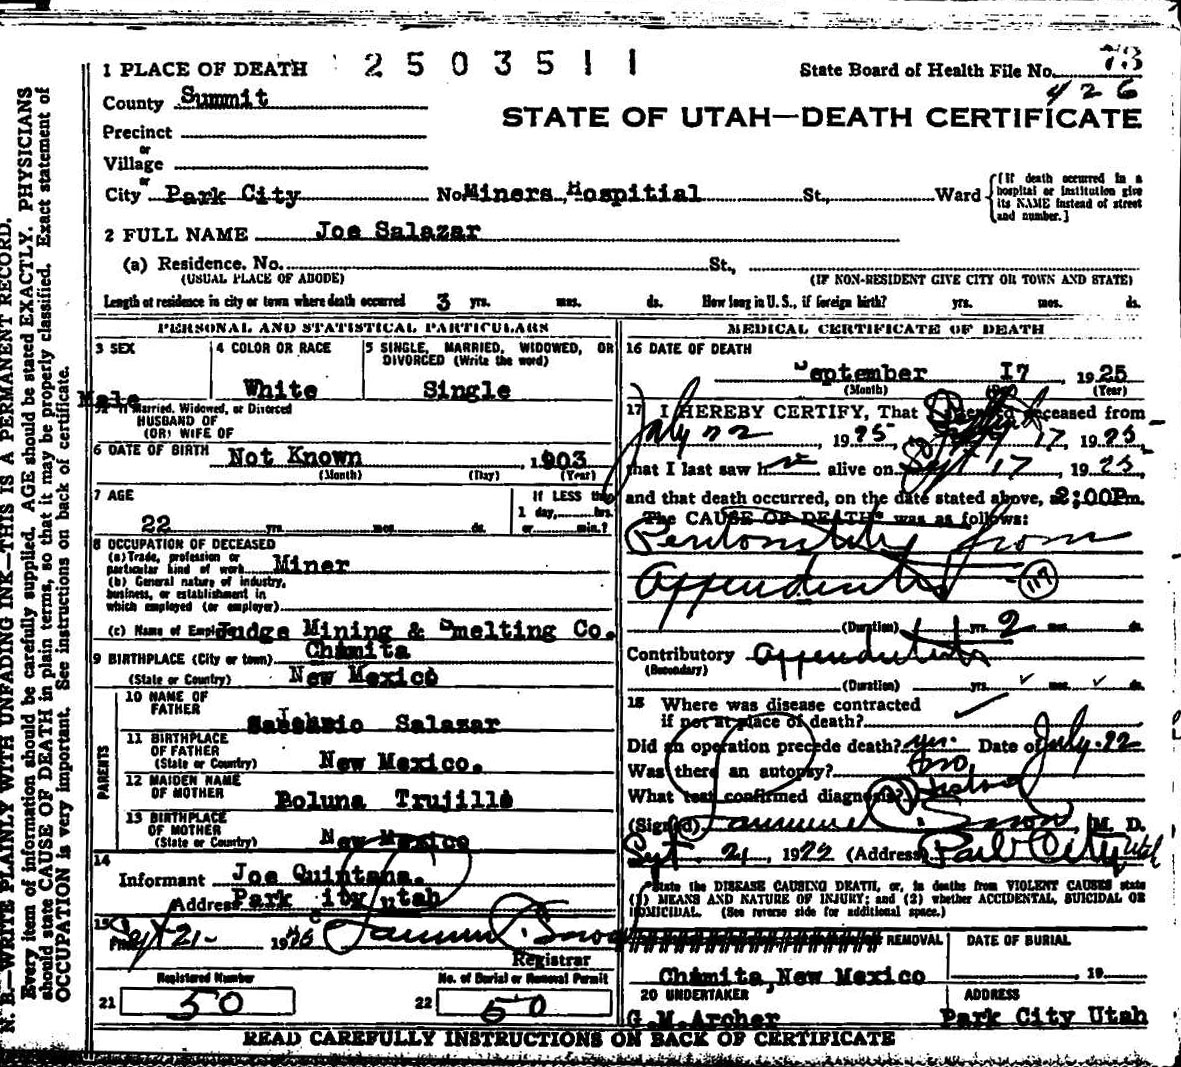 1 PLACE OF DEATH 2503511 State Board of Health File No. 73
426
County Summit
STATE OF UTAH—DEATH CERTIFICATE
Precinct
or
Village
or
City Park City No. Miners Hospitial St., Ward
{[If death occurred in a hospital or institution give its NAME instead of street and number.]
2 FULL NAME Joe Salazar
(a) Residence. No. St.,
(USUAL PLACE OF ABODE) (IF NON-RESIDENT GIVE CITY OR TOWN AND STATE)
Length of residence in city or town where death occurred 3 yrs. mos. ds. How long in U. S., if foreign birth? yrs. mos. ds.
PERSONAL AND STATISTICAL PARTICULARS
3 SEX 4 COLOR OR RACE 5 SINGLE, MARRIED, WIDOWED, OR
DIVORCED (Write the word)
Male White Single
If Married, Widowed, or Divorced
HUSBAND OF
(OR) WIFE OF
6 DATE OF BIRTH Not Known 1903
(Month) (Day) (Year)
7 AGE If LESS than
1 day, hrs.
22 yrs. mos. ds. or min.?
8 OCCUPATION OF DECEASED
(a) Trade, profession or
particular kind of work Miner
(b) General nature of industry,
business, or establishment in
which employed (or employer)
(c) Name of Employer Judge Mining & Smelting Co.
9 BIRTHPLACE (City or town) Chamita
(State or Country) New Mexico
PARENTS
10 NAME OF
FATHER Salazar
11 BIRTHPLACE
OF FATHER
(State or Country) New Mexico.
12 MAIDEN NAME
OF MOTHER Boluna Trujillo
13 BIRTHPLACE
OF MOTHER
(State or Country) New Mexico
14
Informant Joe Quintana.
Address Park ity utah
15
21 1925
Registrar
Registered Number No. of Burial or Removal Permit
21 50 22 50
MEDICAL CERTIFICATE OF DEATH
16 DATE OF DEATH
September 17 1925
(Month) (Day) (Year)
17 I HEREBY CERTIFY, That I attended deceased from
July 22, 1925 17, 1925,
that I last saw h alive on Sept 17 1925,
and that death occurred, on the date stated above, at 2;00Pm.
The CAUSE OF DEATH* was as follows:
Peritonitis from
Appendicitis 117
(Duration) yrs. 2 ds.
Contributory Appendicitis
(Secondary)
(Duration) yrs. mos. ds.
18 Where was disease contracted
if not at place of death?
Did an operation precede death? yes. Date of July 22
Was there an autopsy? no
What test confirmed diagnosis?
(Signed) M. D.
Sept. 21, 1922 (Address) Park City Utah
State the DISEASE CAUSING DEATH, or, in deaths from VIOLENT CAUSES state
(1) MEANS AND NATURE OF INJURY; and (2) whether ACCIDENTAL, SUICIDAL OR
HOMICIDAL. (See reverse side for additional space.)
REMOVAL DATE OF BURIAL
Chamita, New Mexico , 19
20 UNDERTAKER ADDRESS
G.M.Archer Park City Utah
READ CAREFULLY INSTRUCTIONS ON BACK OF CERTIFICATE
N. B.—WRITE PLAINLY WITH UNFADING INK—THIS IS A PERMANENT RECORD.
Every item of information should be carefully supplied. AGE should be stated EXACTLY. PHYSICIANS
should state CAUSE OF DEATH in plain terms, so that it may be properly classified. Exact statement of
OCCUPATION is very important. See instructions on back of certificate.